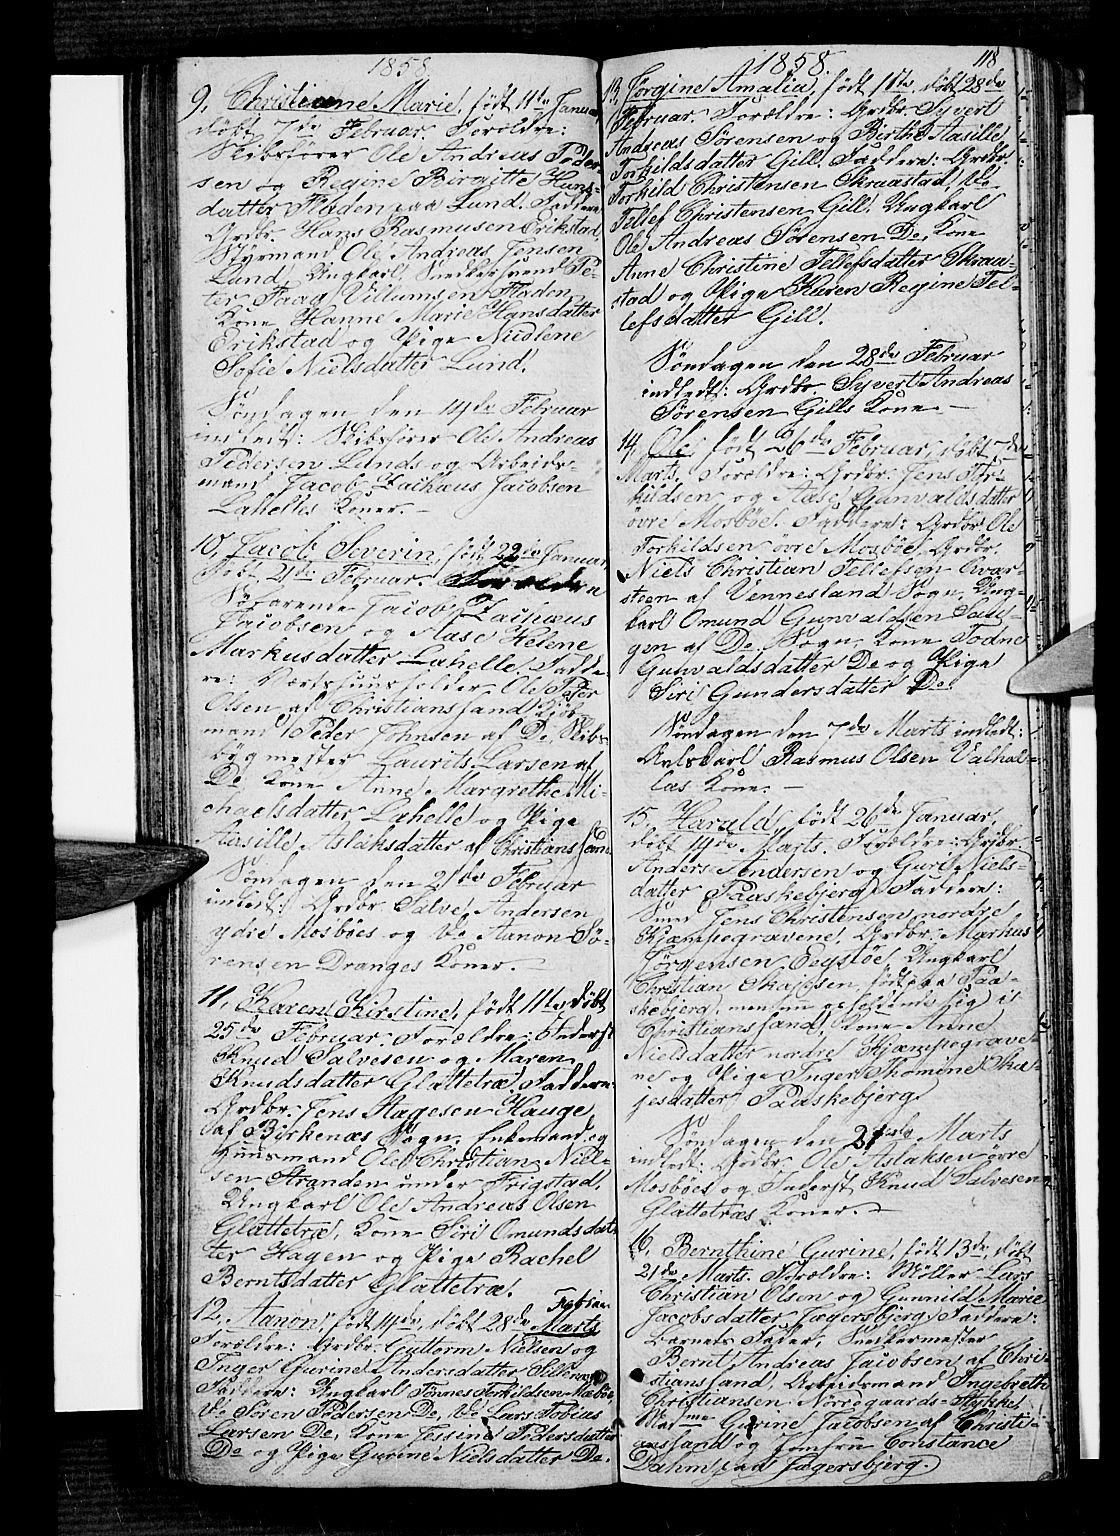 1858
9, Christiane Marie, født 11te Januar,
døbt 7de Februar. Forældre:
Skibsfører Ole Andreas Peder-
sen og Regine Birgitte Hans-
datter Fladen paa Lund. Faddere:
Grdbr. Hans Rasmusen Erikstad,
Styrmand Ole Andreas Jensen
Lund, Ungkarl Snedkersvend Pe-
ter Faag Villumsen Fladen,
Kone Hanne Marie Hansdatter
Erikstad og Pige Nicoline
Sofie Nielsdatter Lund.
Søndagen den 14de Februar
indledt: Skibsfører Ole Andreas
Pedersen Lunds og Arbeids-
mand Jacob Zachæus Jacobsen
Lahelles Koner. –
10, Jacob Severin, født 22de Januar,
døbt 21de Februar. Forældre
Søfarende Jacob Zachæus
Jacobsen og Aase Helene
Markusdatter Lahelle. Fadde-
re: Værtshuusholder Ole Peter
Olsen af Christianssand, Kjøb-
mand Peder Johnsen af Do, Skibs-
bygmester Laurits Larsen af
Do, Kone Anne Margrethe Mi-
chaelsdatter Lahelle og Pige
Aasille Aslaksdatter af Christianssand.
Søndagen den 21de Februar
indledt: Grdbr. Salve Andersen
ydre Mosbøes og Do Aanon Sø-
rensen Dranges Koner. –
11, Karen Kirstine, født 11te, døbt
25de Februar. Forældre: Inderst
Knud Salvesen og Maren
Knudsdatter Glattetræ. Faddere:
Grdbr. Jens Aagesen Hauge
af Birkenæs Sogn, Enkemand og
Huusmand Ole Christian Niel-
sen Stranden under Frigstad,
Ungkarl Ole Andreas Olsen
Glattetræ, Kone Siri Omundsdat-
ter Hagen og Pige Rachel
Berntsdatter Glattetræ.
12, Aanon, født 14de, døbt 28de Februar
Marts
Forældre: Grdbr. Guttorm Nielsen og
Inger Gurine Andersdatter
Faddere: Ungkarl Tønnes Terkildsen Mosbøe,
Do Søren Pedersen Do, Do Lars Tobias
Larsen Do, Kone Josine Pedersdatter
Do og Pige Gurine Nielsdatter Do.
1858.
118
13, Jørgine Amalia, født 11te, døbt 28de
Februar. Forældre: Grdbr. Syvert
Andreas Sørensen og Birthe Aasille
Torkildsdatter Gill. Faddere: Grdbr.
Torkild Christensen Skraastad, Do
Tellef Christensen Gill, Ungkarl
Ole Andreas Sørensen Do, Kone
Anne Christine Tellefsdatter Skraa-
stad og Pige Karen Regine Tel-
lefsdatter Gill.
Søndagen den 28de Februar
indledt: Grdbr Syvert Andreas
Sørensen Gills Kone. –
14, Ole, født 26de Februar, døbt 7de
Marts. Forældre: Grdbr. Jens Tor-
kildsen og Aase Gunvaldsdatter
øvre Mosbøe. Faddere: Grdbr Ole
Torkildsen øvre Mosbøe, Grdbr.
Niels Christian Tellefsen Kvar-
steen af Vennesland Sogn, Ung-
karl Omund Gunvaldsen
af Do Sogn, Kone Todne
Gunvaldsdatter Do og Pige
Siri Gundersdatter Do.
Søndagen den 7de Marts indledt:
Avlskarl Rasmus Olsen Valhal-
las Kone. –
15, Harald, født 26de Januar,
døbt 14de Marts. Forældre: Grdbr.
Anders Andersen og Guri Niels-
datter Paaskebjerg. Faddere:
Smed Jens Christensen nordre
Kjæmpegravene, Grdbr. Markus
Jørgensen Eegsløe, Ungkarl
Christian Skajesen, født paa Paa-
skebjerg, men nu opholdende sig i
Christianssand, Kone Anne
Nielsdatter nordre Kjæmpegrave-
ne og Pige Inger Thomine Ska-
jesdatter Paaskebjerg.
Søndagen den 21de Marts
indledt: Grdbr. Ole Aslaksen øvre
Mosbøes og Inderst Knud Salvesen
Glattetræs Koner. –
16, Bernthine Gurine, født 13de, døbt
21de Marts. Forældre: Møller Lars
Christian Olsen og Gunnild Marie
Jacobsdatter Jægersbjerg. Faddere:
Barnets Fader, Snedkermester
Bernt Andreas Jacobsen af Chri-
stianssand, Arbeidsmand Ingebreth
Christiansen Norregaards-Stykket,
Mad.me Gurine Jacobsen af Christi-
anssand og Jomfru Constance
Dahm paa Jægersbjerg.